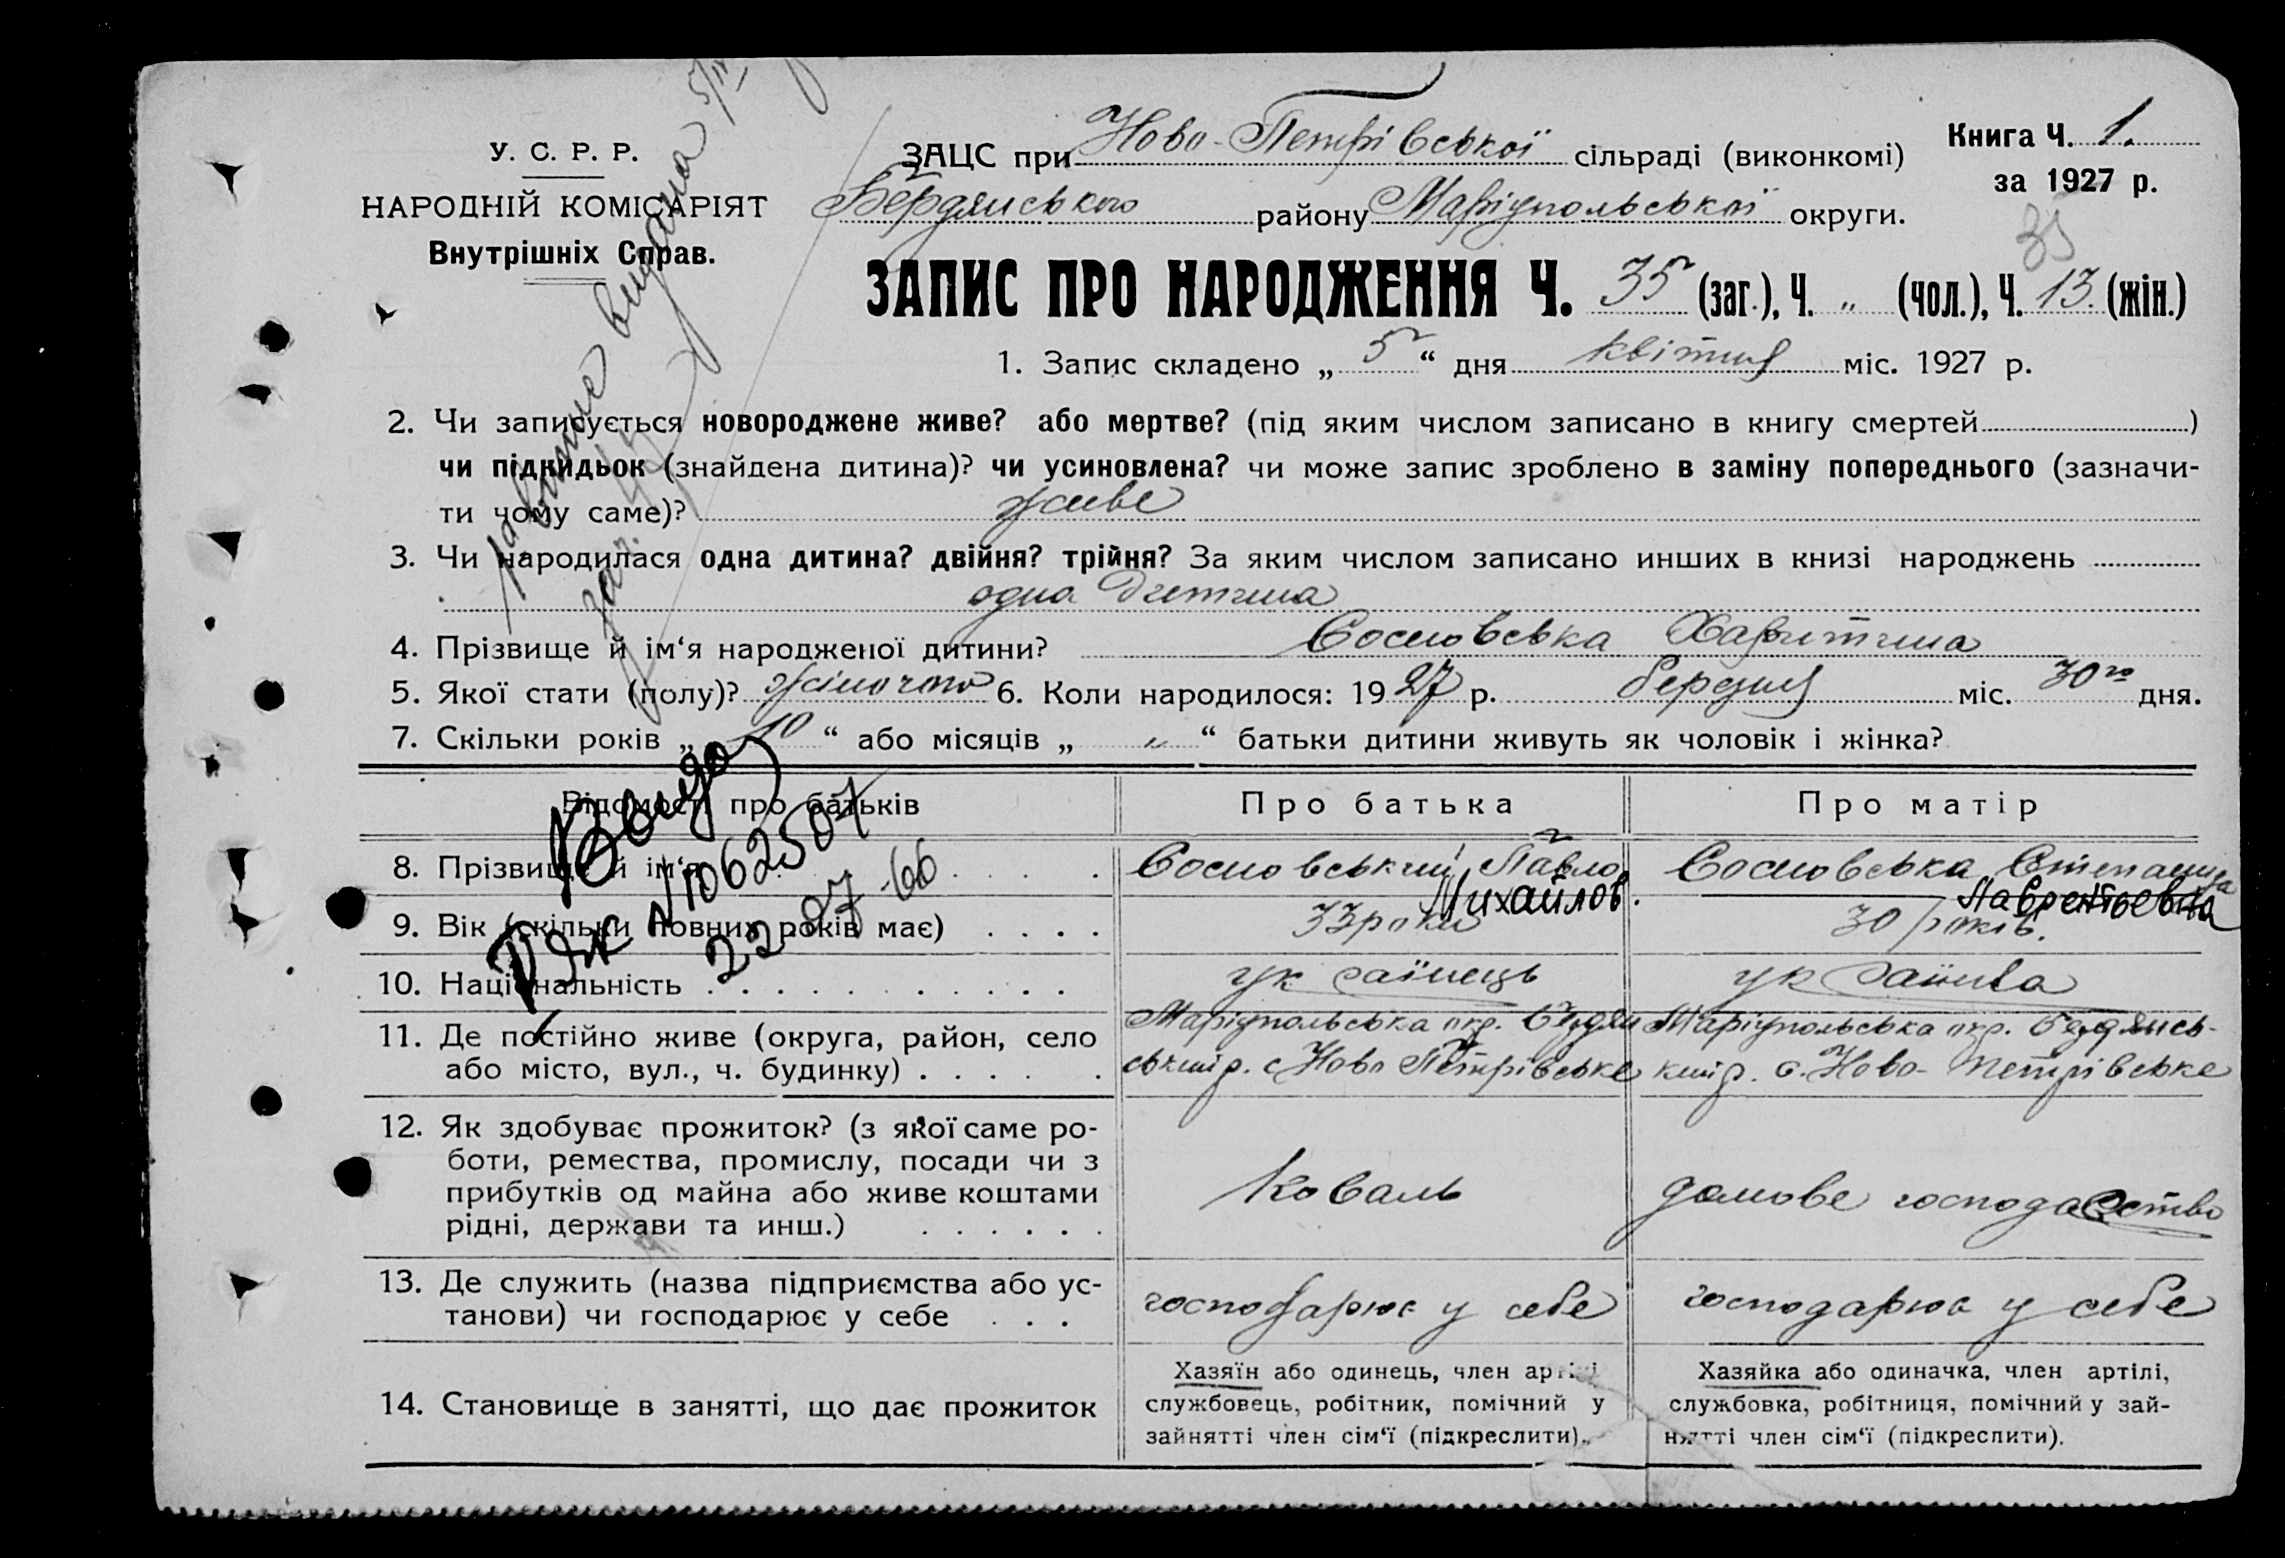 У. С. Р. Р.
НАРОДНІЙ КОМІСАРІЯТ
Внутрішніх Справ.
ЗАЦС при Ново-Петрівської сільраді (виконкомі)
Бердянського району Маріупольської округи.
Книга Ч. 1.
за 1927 р.
35
ЗАПИС ПРО НАРОДЖЕННЯ Ч. 35 (заг.), Ч. „ (чол.), Ч. 13. (жін.)
1. Запис складено „ 5 “ дня квітня міс. 1927 р.
2. Чи записується новороджене живе? або мертве? (під яким числом записано в книгу смертей )
чи підкидьок (знайдена дитина)? чи усиновлена? чи може запис зроблено в заміну попереднього (зазначи-
ти чому саме)? живе
3. Чи народилася одна дитина? двійня? трійня? За яким числом записано инших в книзі народжень
одна дитина
4. Прізвище й ім‘я народженої дитини? Сосновська Харитина
5. Якої стати (полу)? жіночого 6. Коли народилося: 1927 р. березня міс. 30го дня.
7. Скільки років „ 10 “ або місяців „ „ “ батьки дитини живуть як чоловік і жінка?
Відомості про батьків Про батька Про матір
8. Прізвище й ім‘я Сосновський Павло Сосновська Степанида
Михайлов. Лаврентьевна
9. Вік (скільки повних років має) 33 роки 30 років.
10. Національність українець українка
11. Де постійно живе (округа, район, село Маріупольська окр. Бердян Маріупольська окр. Бердянсь-
або місто, вул., ч. будинку) ський р. с Ново Петрівське кий р. с. Ново-Петрівське
12. Як здобуває прожиток? (з якої саме ро-
боти, ремества, промислу, посади чи з
прибутків од майна або живе коштами
рідні, держави та инш.)
Коваль домове господарство
13. Де служить (назва підприємства або ус-
танови) чи господарює у себе
господарює у себе господарює у себе
14. Становище в занятті, що дає прожиток
Хазяїн або одинець, член артілі
службовець, робітник, помічний у
зайнятті член сім‘ї (підкреслити).
Хазяйка або одиначка, член артілі,
службовка, робітниця, помічний у зай-
нятті член сім‘ї (підкреслити).
видана
№1062507